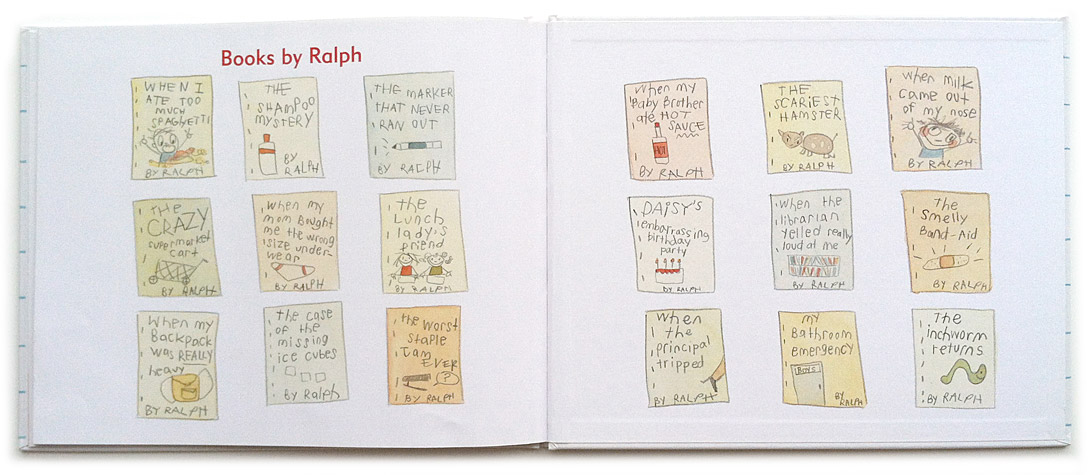 Books by Ralph
WHEN I
ATE TOO
MUCH
SPAGHETTI
BY RALPH
THE
SHAMPOO
MYSTERY
BY
RALPH
THE MARKER
THAT NEVER
RAN OUT
BY RALPH
THE
CRAZY
supermarket
cart
BY RALPH
When my
mom Bought
me the wrong
size under-
wear
BY RALPH
the
Lunch
lady's
friend
BY RALPH
When my
Backpack
was REALLY
heavy
BY RALPH
the case
of the
missing
ice cubes
By Ralph
the worst
staple
jam
EVER
?
BY RALPH
When my
Baby Brother
ate HOT
SAUCE
HOT
BY RALPH
THE
SCARIEST
HAMSTER
BY RALPH
when milk
came out
of my nose
BY RALPH
DAISY'S
embarrassing
birthday
party
BY RALPH
When the
librarian
yelled really
loud at me
BY RALPH
The
Smelly
Band-Aid
BY RALPH
When
the
principal
tripped
BY RALPH
my
Bathroom
emergency
BOYS
BY
RALPH
The
inchworm
returns
BY RALPH